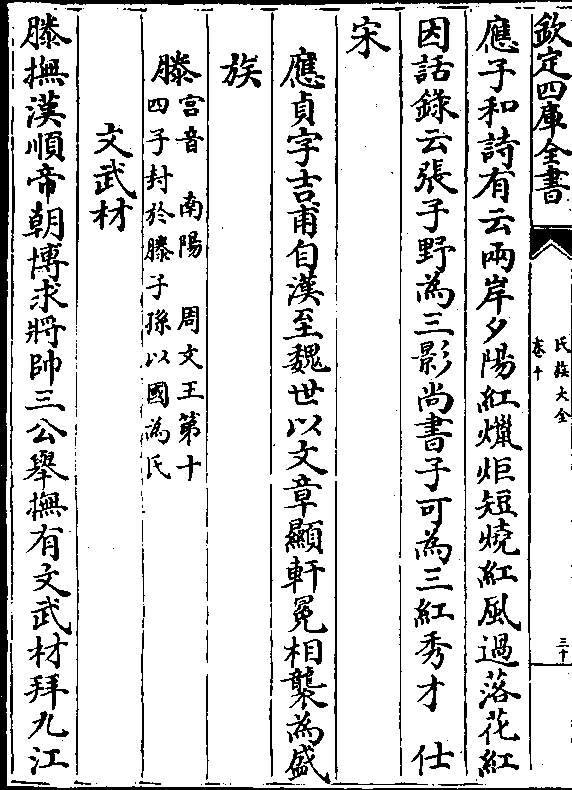 欽定四庫全書
氏族大全
卷十
三十
應子和詩有云兩岸夕陽紅爉炬短燒紅風過落花紅
因話錄云張子野為三影尚書子可為三紅秀才　仕
宋
應貞字吉甫自漢至魏世以文章顯軒冕相襲為盛
族
滕
宮音　南陽　周文王第十
四子封於滕子孫以國為氏
文武材
滕撫漢順帝朝博求將帥三公舉撫有文武材拜九江